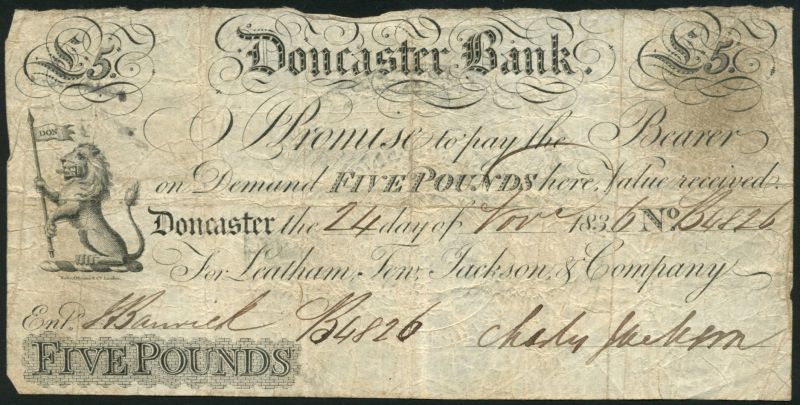 £5. Doncaster Bank. £5.
DON
I Promise to pay the Bearer
on Demand FIVE POUNDS here, Value received.
Doncaster the 24 day of Novr 1836 No B4826
For Leatham, Tew, Jackson, & Company
Entd. B4826 Charles Jackson
FIVE POUNDS